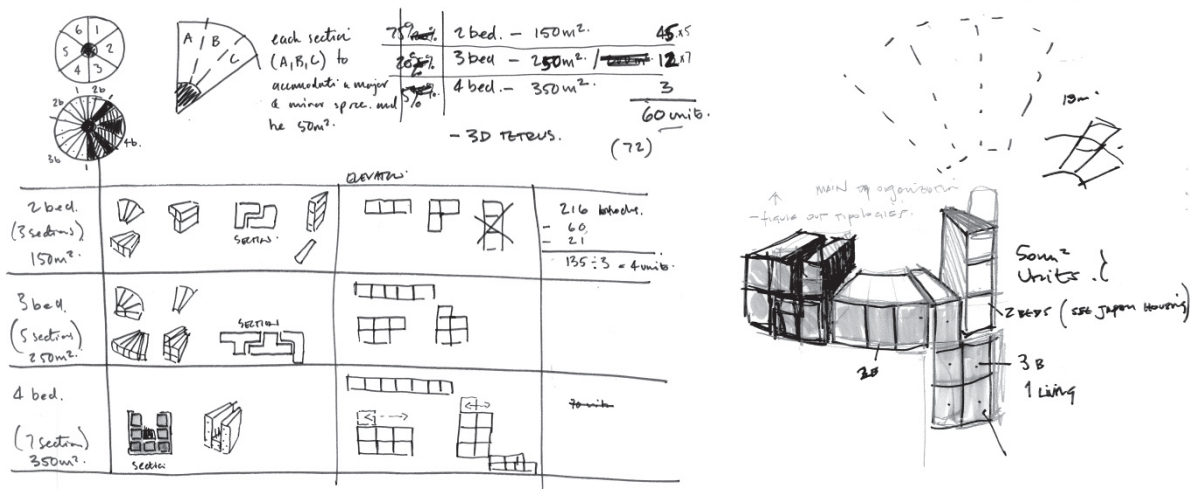 6 1
5 2
4 3
A B C
each section
(A, B, C) to
accomodati a major
& minor space. and
be 50m².
75% 2 bed. – 150m². 45 x5
20% 3 bed – 250m². / 12 x7
5% 4 bed. – 350m². 3
60 units.
– 3D TETRUS. (72)
2b 2b
4b.
3b
1
ELEVATION
2 bed.
(3 sections)
150m².
SECTION
216
– 60
– 21
135 ÷ 3 = 4 units.
3 bed
(5 sections)
250m².
SECTION
4 bed.
(7 section)
350m².
Section
MAIN organization
– figure out typologies.
50m²
Units. }
2 BEDS (SEE JAPAN HOUSING)
3 B
1 Living